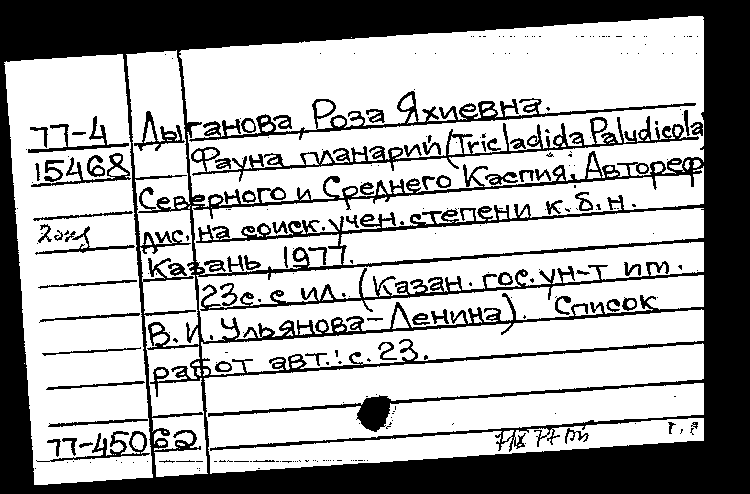 77-4 Дыганова, Роза Яхиевна.
15468 Фауна планарий (Tricladida Paludicola)
Северного и Среднего Каспия. Автореф.
2экз дис. на соиск. учен. степени к.б.н.
Казань, 1977.
23с. с ил. (Казан. гос. ун-т им.
В.И. Ульянова-Ленина). Список
работ авт.: с. 23.
77-45062